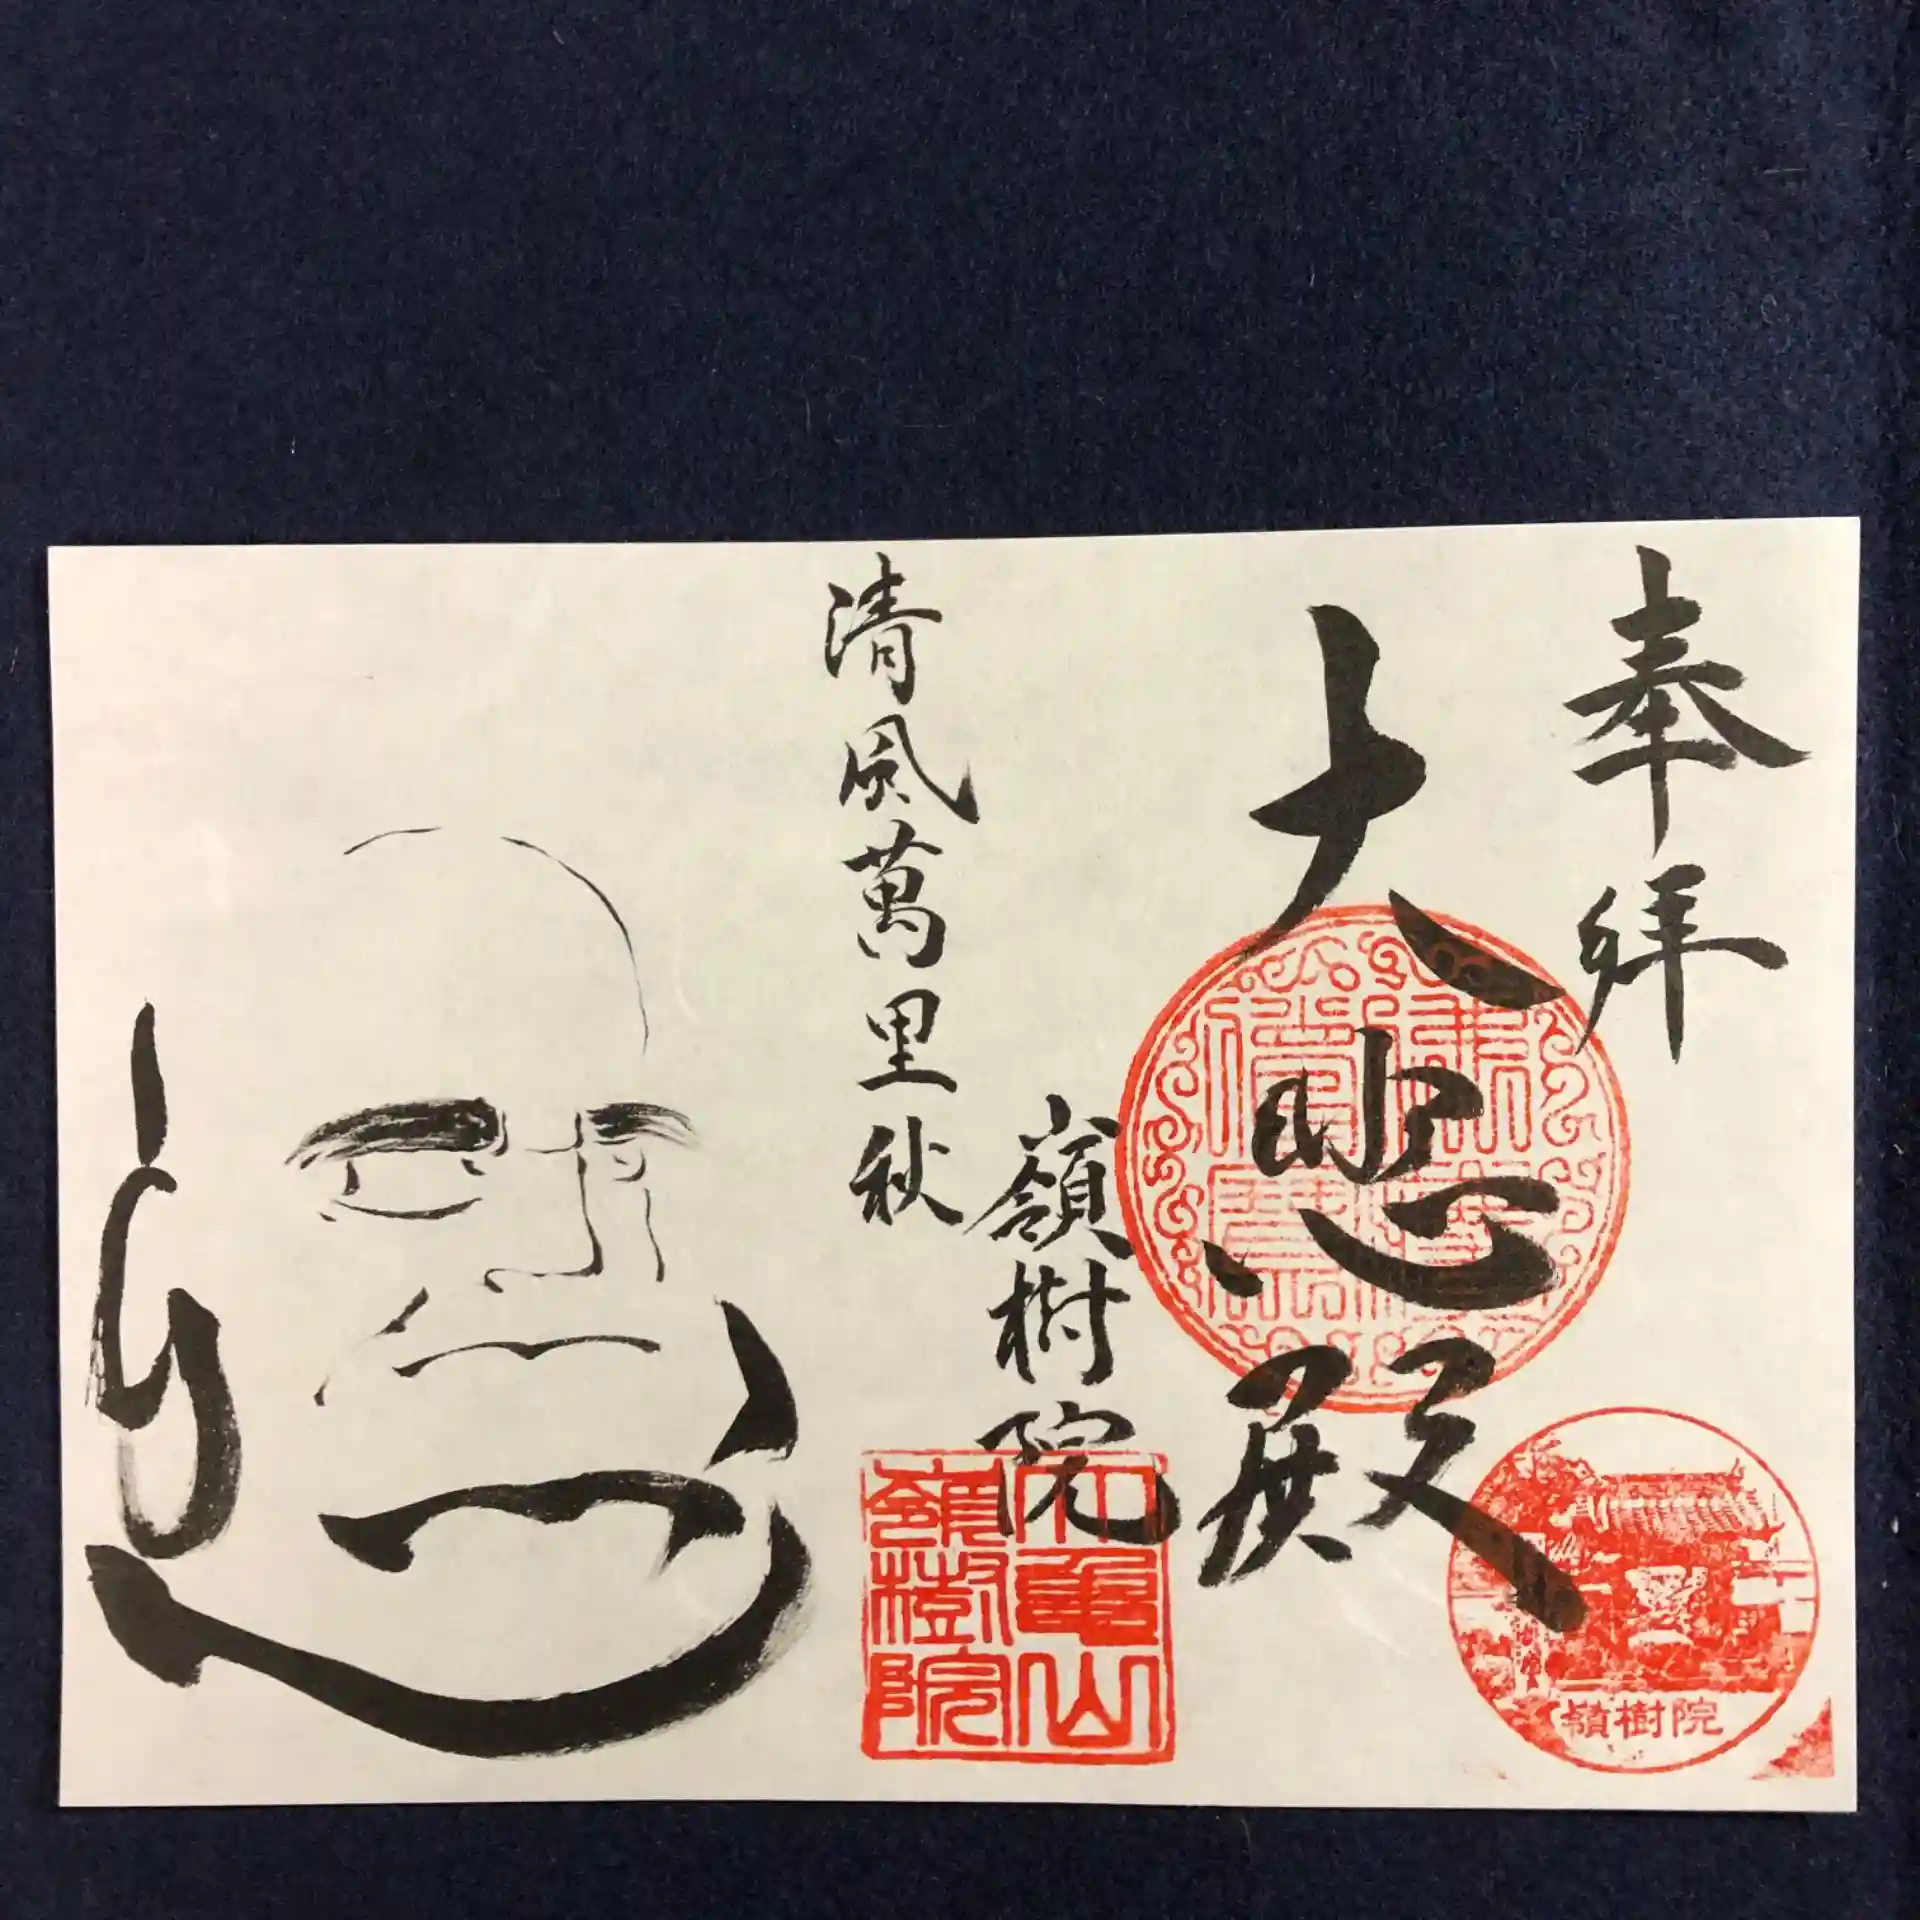 奉拝
大悲殿
嶺樹院
清風萬里秋
嶺樹院
嶺樹院